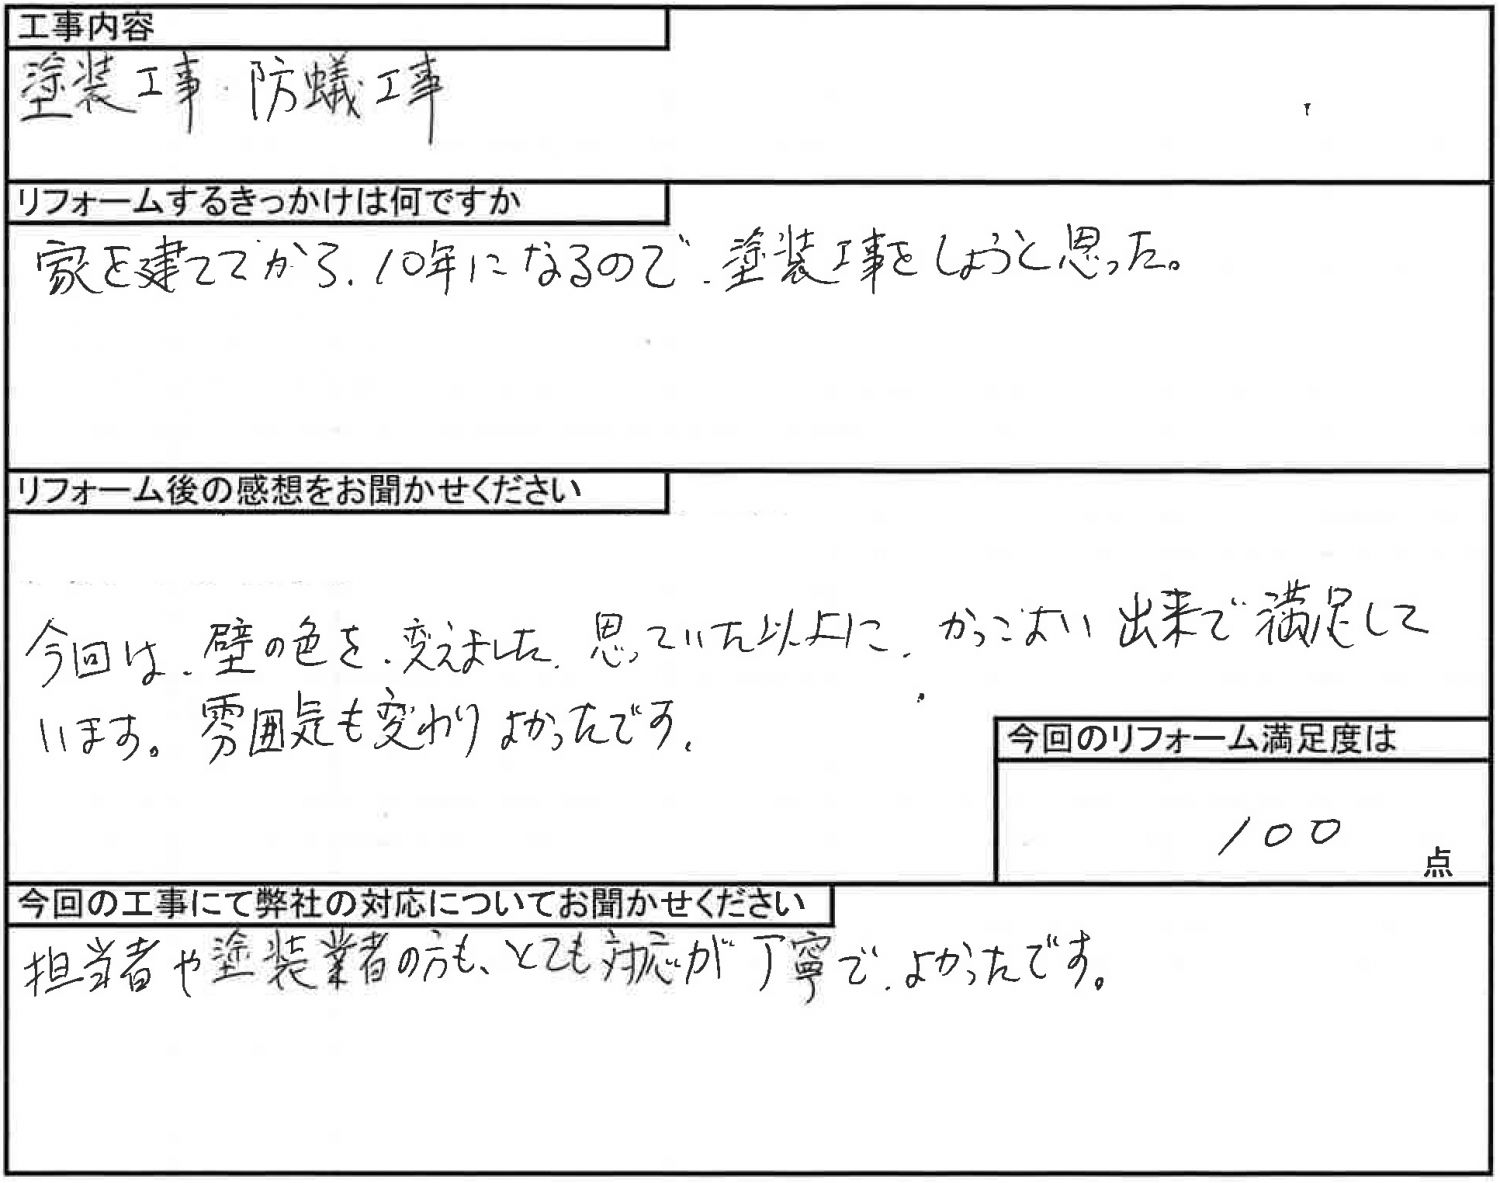 工事内容
塗装工事・防蟻工事
リフォームするきっかけは何ですか
家を建ててから、10年になるので、塗装工事をしようと思った。
リフォーム後の感想をお聞かせください
今回は、壁の色を、変えました。思っていた以上に、かっこよい出来で満足して
います。雰囲気も変わりよかったです。
今回のリフォーム満足度は
100
点
今回の工事にて弊社の対応についてお聞かせください
担当者や塗装業者の方も、とても対応が丁寧で、よかったです。